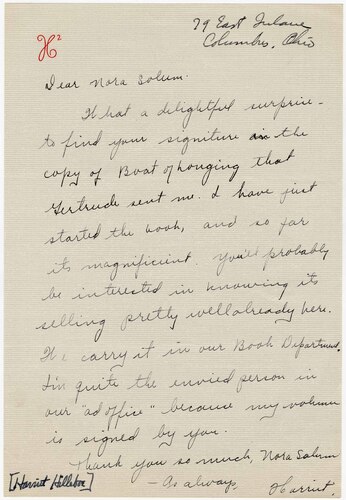 H²
79 East Tulane
Columbus, Ohio
Dear Nora Solum.
What a delightful surprise -
to find your signiture in the
copy of Boat of Longing that
Gertrude sent me. I have just
started the book, and so far
its magnificient. You'll probably
be interested in knowing its
selling pretty well already here.
We carry it in our Book Department.
I'm quite the envied person in
our "ad office" because my volume
is signed by you.
Thank you so much, Nora Solum
- As always,
Harriet.
[Harriet Hilleboe]